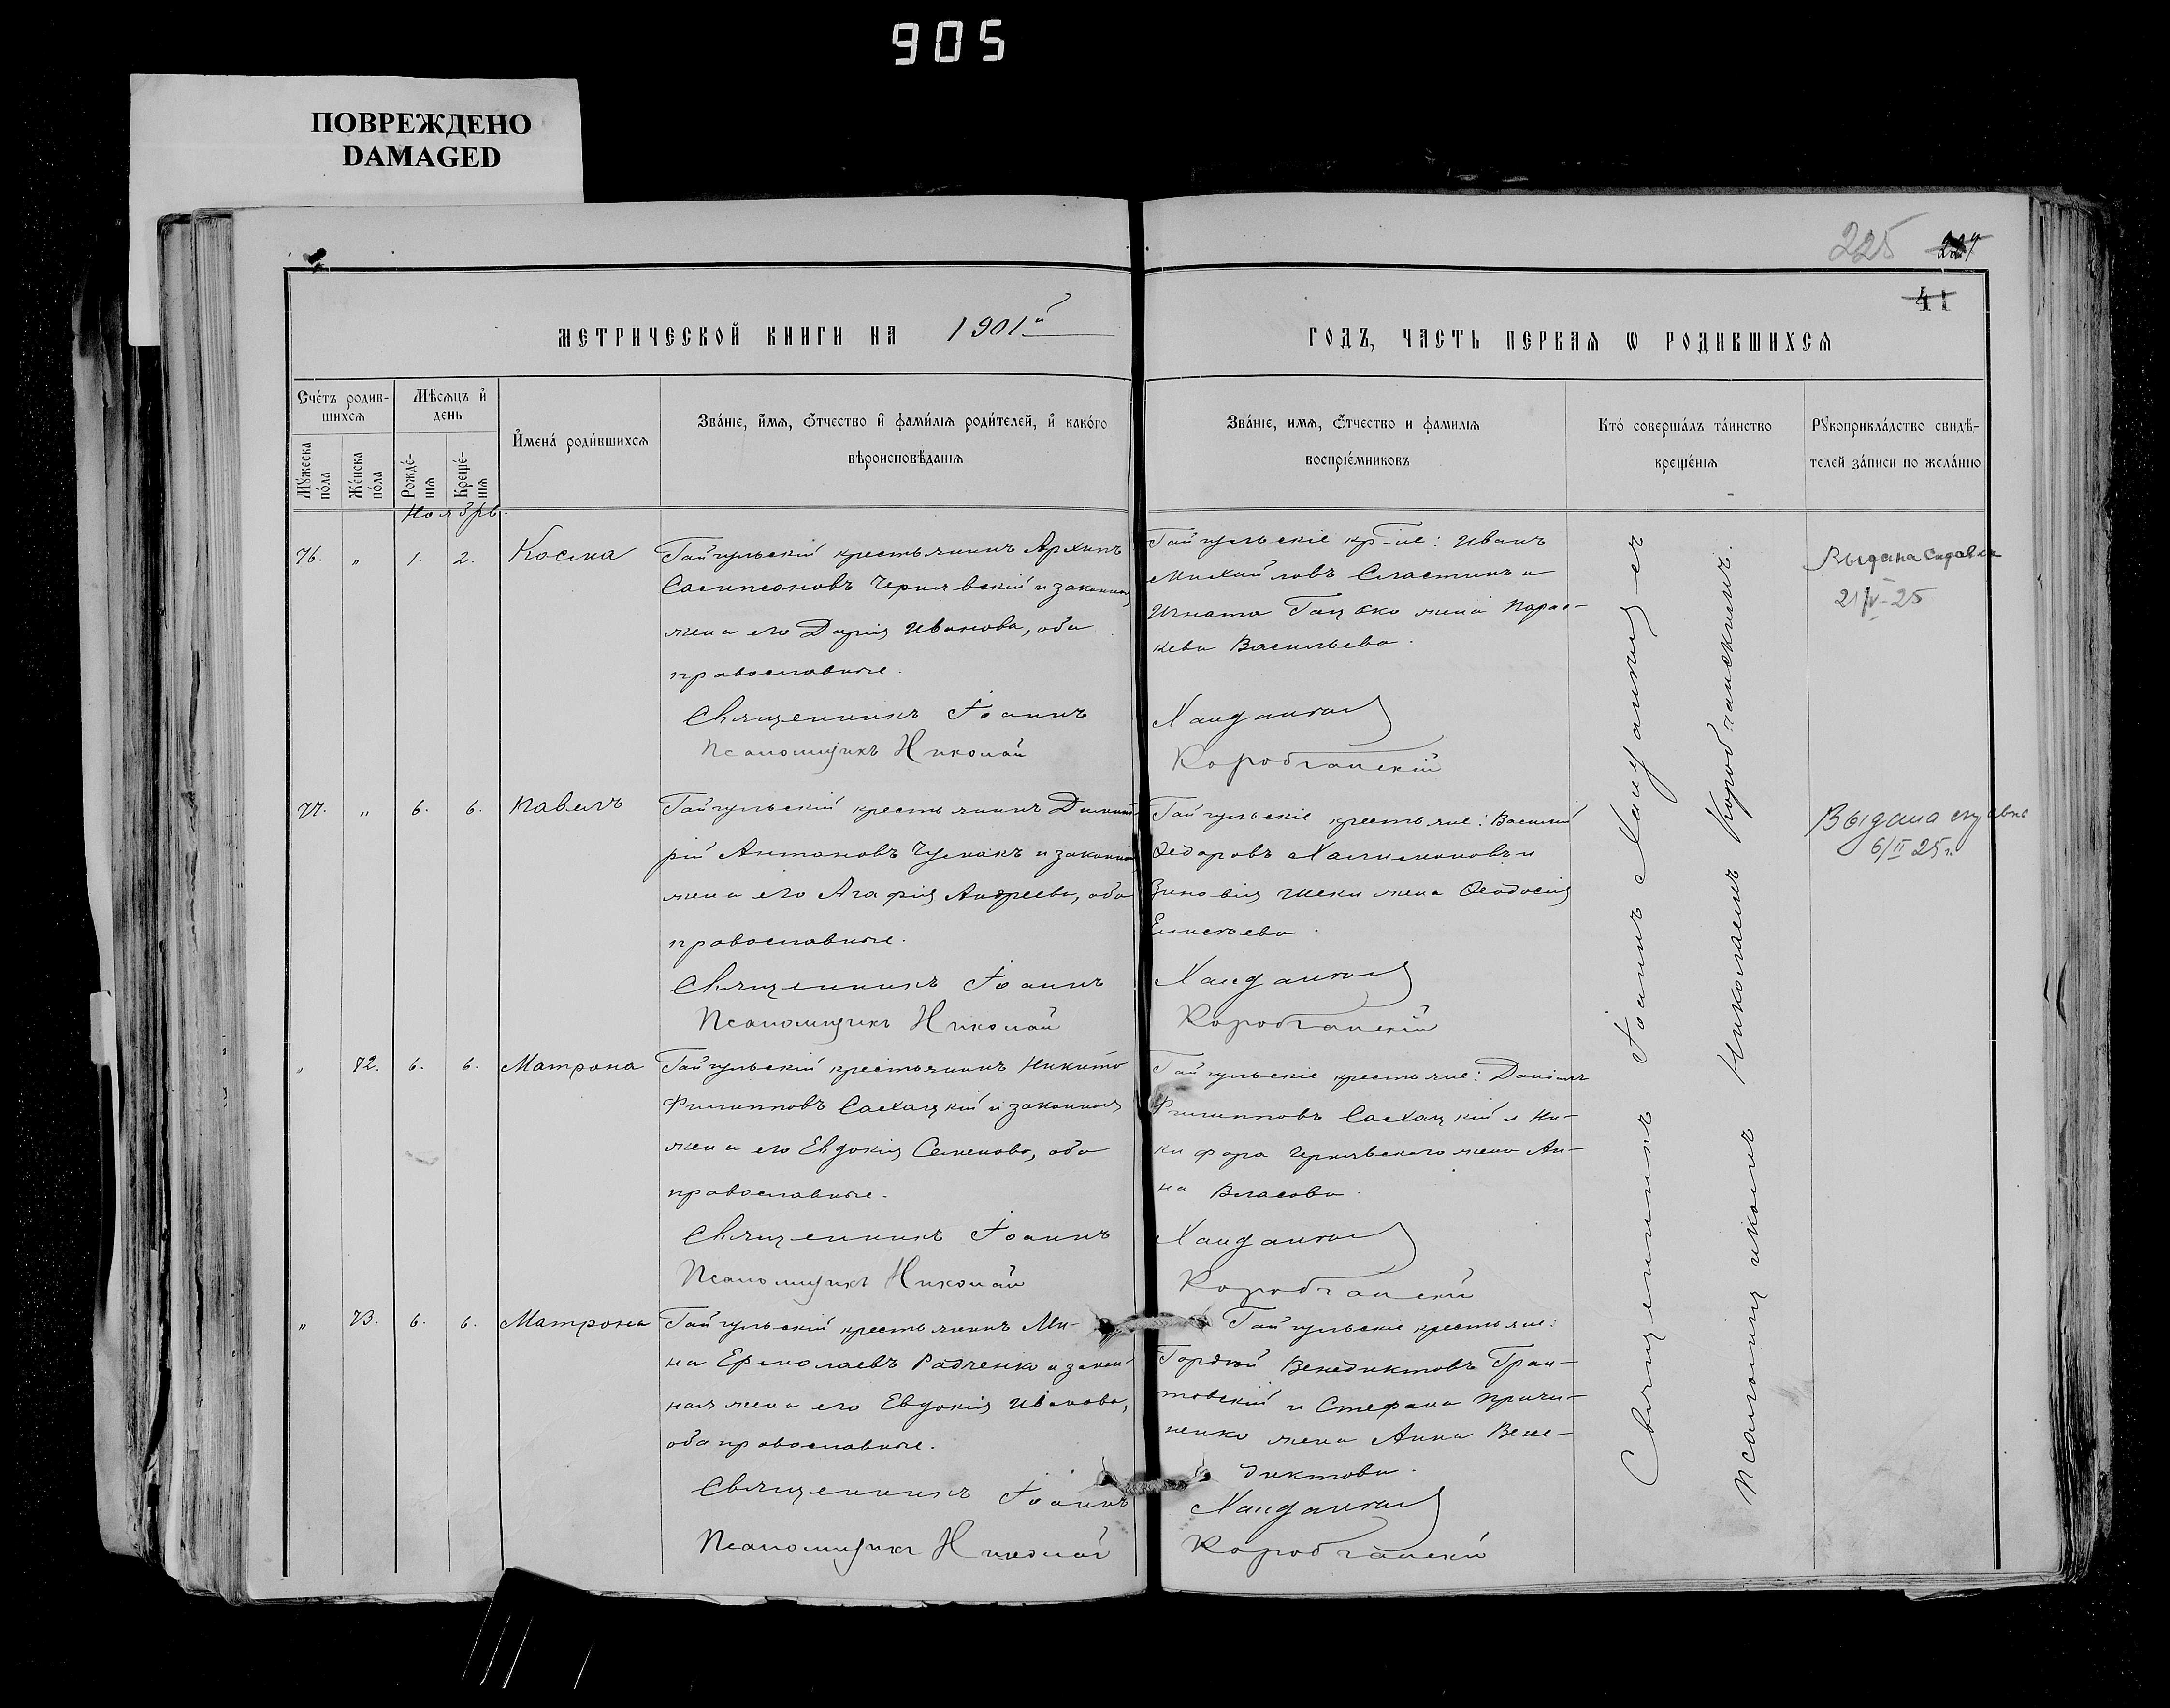 905
ПОВРЕЖДЕНО
DAMAGED
225
41
МЕТРИЧЕСКОЙ КНИГИ НА 1901й
ГОДЪ, ЧАСТЬ ПЕРВАЯ Ѡ РОДИВШИХСЯ
Счетъ родив-
шихся
Мѣсяцъ и
день
Мужеска
пола
Женска
пола
Рожде-
нія
Креще-
нія
Имена родившихся
Званіе, имя, отчество и фамилія родителей, и какого
вѣроисповѣданія
Званіе, имя, отчество и фамилія
воспріемниковъ
Кто совершалъ таинство
крещенія
Рукоприкладство свидѣ-
телей записи по желанію
Ноябрь.
76. „ 1. 2. Косма
Гайгульскій крестьянинъ Архипъ
Сампсоновъ Чернявскій и законная
жена его Дарія Иванова, оба
православные.
Священникъ Іоаннъ
Псаломщикъ Николай
Гайгульскіе кр-не: Иванъ
Михайловъ Сластинъ и
Игната Гацко жена Парас-
кева Васильева.
Коробчанскій
Выдана справка
21/IV-25
77. „ 6. 6. Павелъ
Гайгульскій крестьянинъ Димит-
рій Антоновъ Чумакъ и законная
жена его Агафія Андреева, оба
православные.
Священникъ Іоаннъ
Псаломщикъ Николай
Гайгульскіе крестьяне: Василій
Ѳедоровъ и
Зиновія жена Ѳеодосія
Елисеева.
Коробчанскій
Выдана справка
6/II 25 г.
„ 72. 6. 6. Матрона
Гайгульскій крестьянинъ Никита
Филипповъ Сахацкій и законная
жена его Евдокія Семенова, оба
православные.
Священникъ Іоаннъ
Псаломщикъ Николай
Гайгульскіе крестьяне: Даніилъ
Филипповъ Сахацкій и Ни-
кифора Чернявскаго жена Ан-
на Власова.
Коробчанскій
„ 73. 6. 6. Матрона
Гайгульскій крестьянинъ Ми-
на Ермолаевъ Радченко и закон-
ная жена его Евдокія Иванова,
оба православные.
Священникъ Іоаннъ
Псаломщикъ Николай
Гайгульскіе крестьяне:
Гордѣй Венедиктовъ Гран-
товскій и Стефана
жена Анна Вене-
диктова.
Коробчанскій
Священникъ Іоаннъ съ
псаломщикомъ Николаемъ Коробчанскимъ.